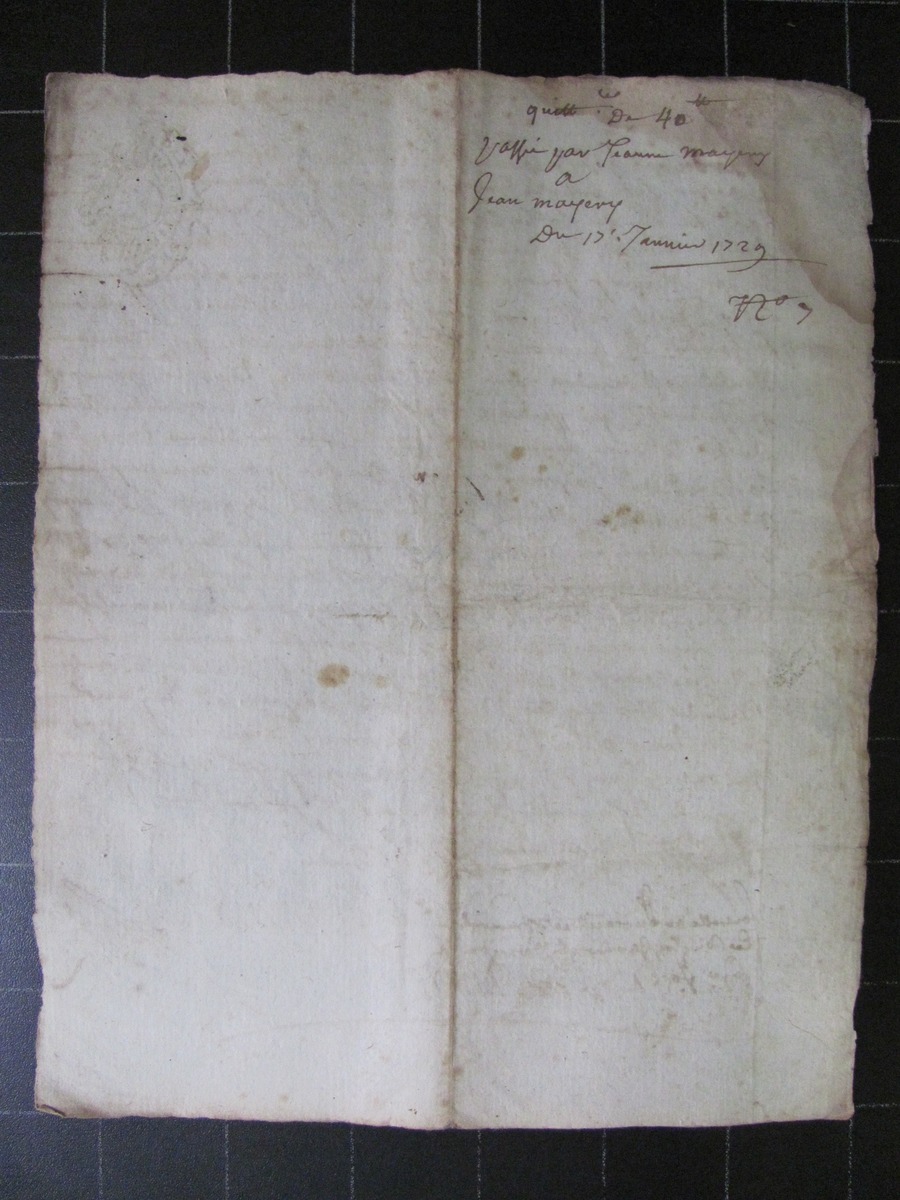 quittce De 40tt
passé par Jeanne mayery
a
Jean mayery
Du 17e Janvier 1729
No 7